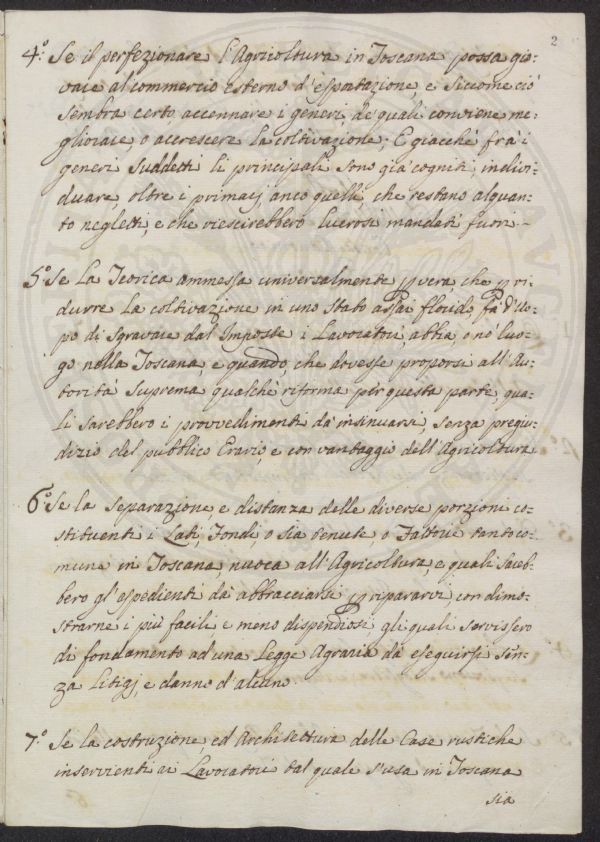 2
4.° Se il perfezionare l'Agricoltura in Toscana possa gio-
vare al commercio esterno d'esportazione, e siccome ciò
sembra certo accennare i generi, de quali conviene me-
gliorare o accrescere la coltivazione; E giacchè frà i
generi suddetti li principali sono già cogniti, indivi-
duare, oltre i primarj anco quelli, che restano alquan-
to negletti, e che riescirebbero lucrosi mandati fuori.
5.° Se La Teorica ammessa universalmente p vera, che p ri-
durre La coltivazione in uno Stato assai florido, fà d'Uo-
po di Sgravare dal Imposte i Lavoratori, abbia, o nò luo-
go nella Toscana, e quando, che dovesse proporsi all'Au-
torità Suprema qualche riforma per questa parte, qua-
li sarebbero i provvedimenti dà insinuarsi, senza pregiu-
dizio del pubblico Erario, e con vantaggio dell'Agricoltura
6.° Se la separazione, e distanza delle diverse porzioni co-
stituenti i Lati, Fondi, o sia tenute o Fattorie tanto co-
mune in Toscana, nuoca all'Agricoltura, e quali sareb-
bero gl'espedienti dà abbracciarsi p ripararvi, con dimo-
strarne i più facili e meno dispendiosi gli quali servissero
di fondamento ad una Legge Agraria dà eseguirsi sen-
za Litigj, e danno d'alcuno.
7.° Se la costruzione, ed Architettura delle Case rustiche
inservienti ai Lavoratori tal quale s'usa in Toscana
sia